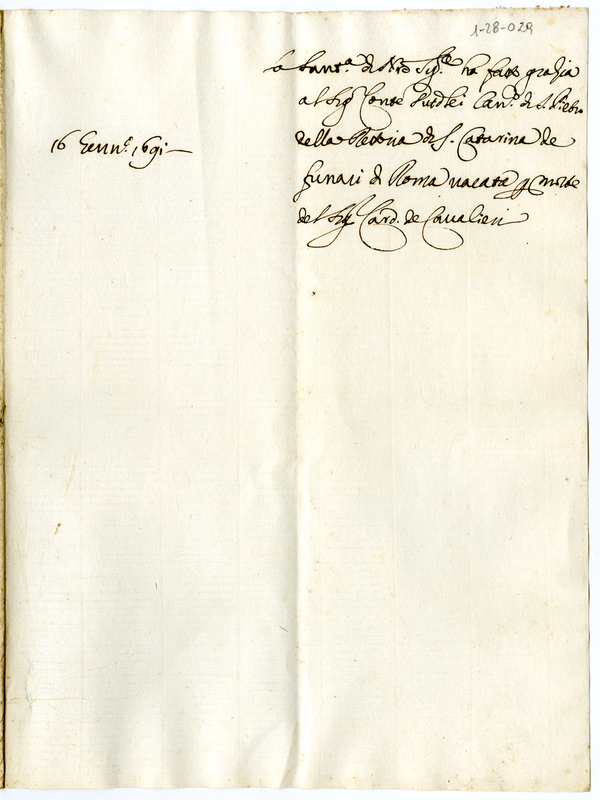 1-28-029
La Sant.ª di Nrō Sig.re ha fatto grazia
al Sig.r Conte Can.co di S. Pietro
della Rettoria di S. Catarina de
funari di Roma vacata p morte
del Sig.r Card. de Cavalieri
16 Genn.o 1691